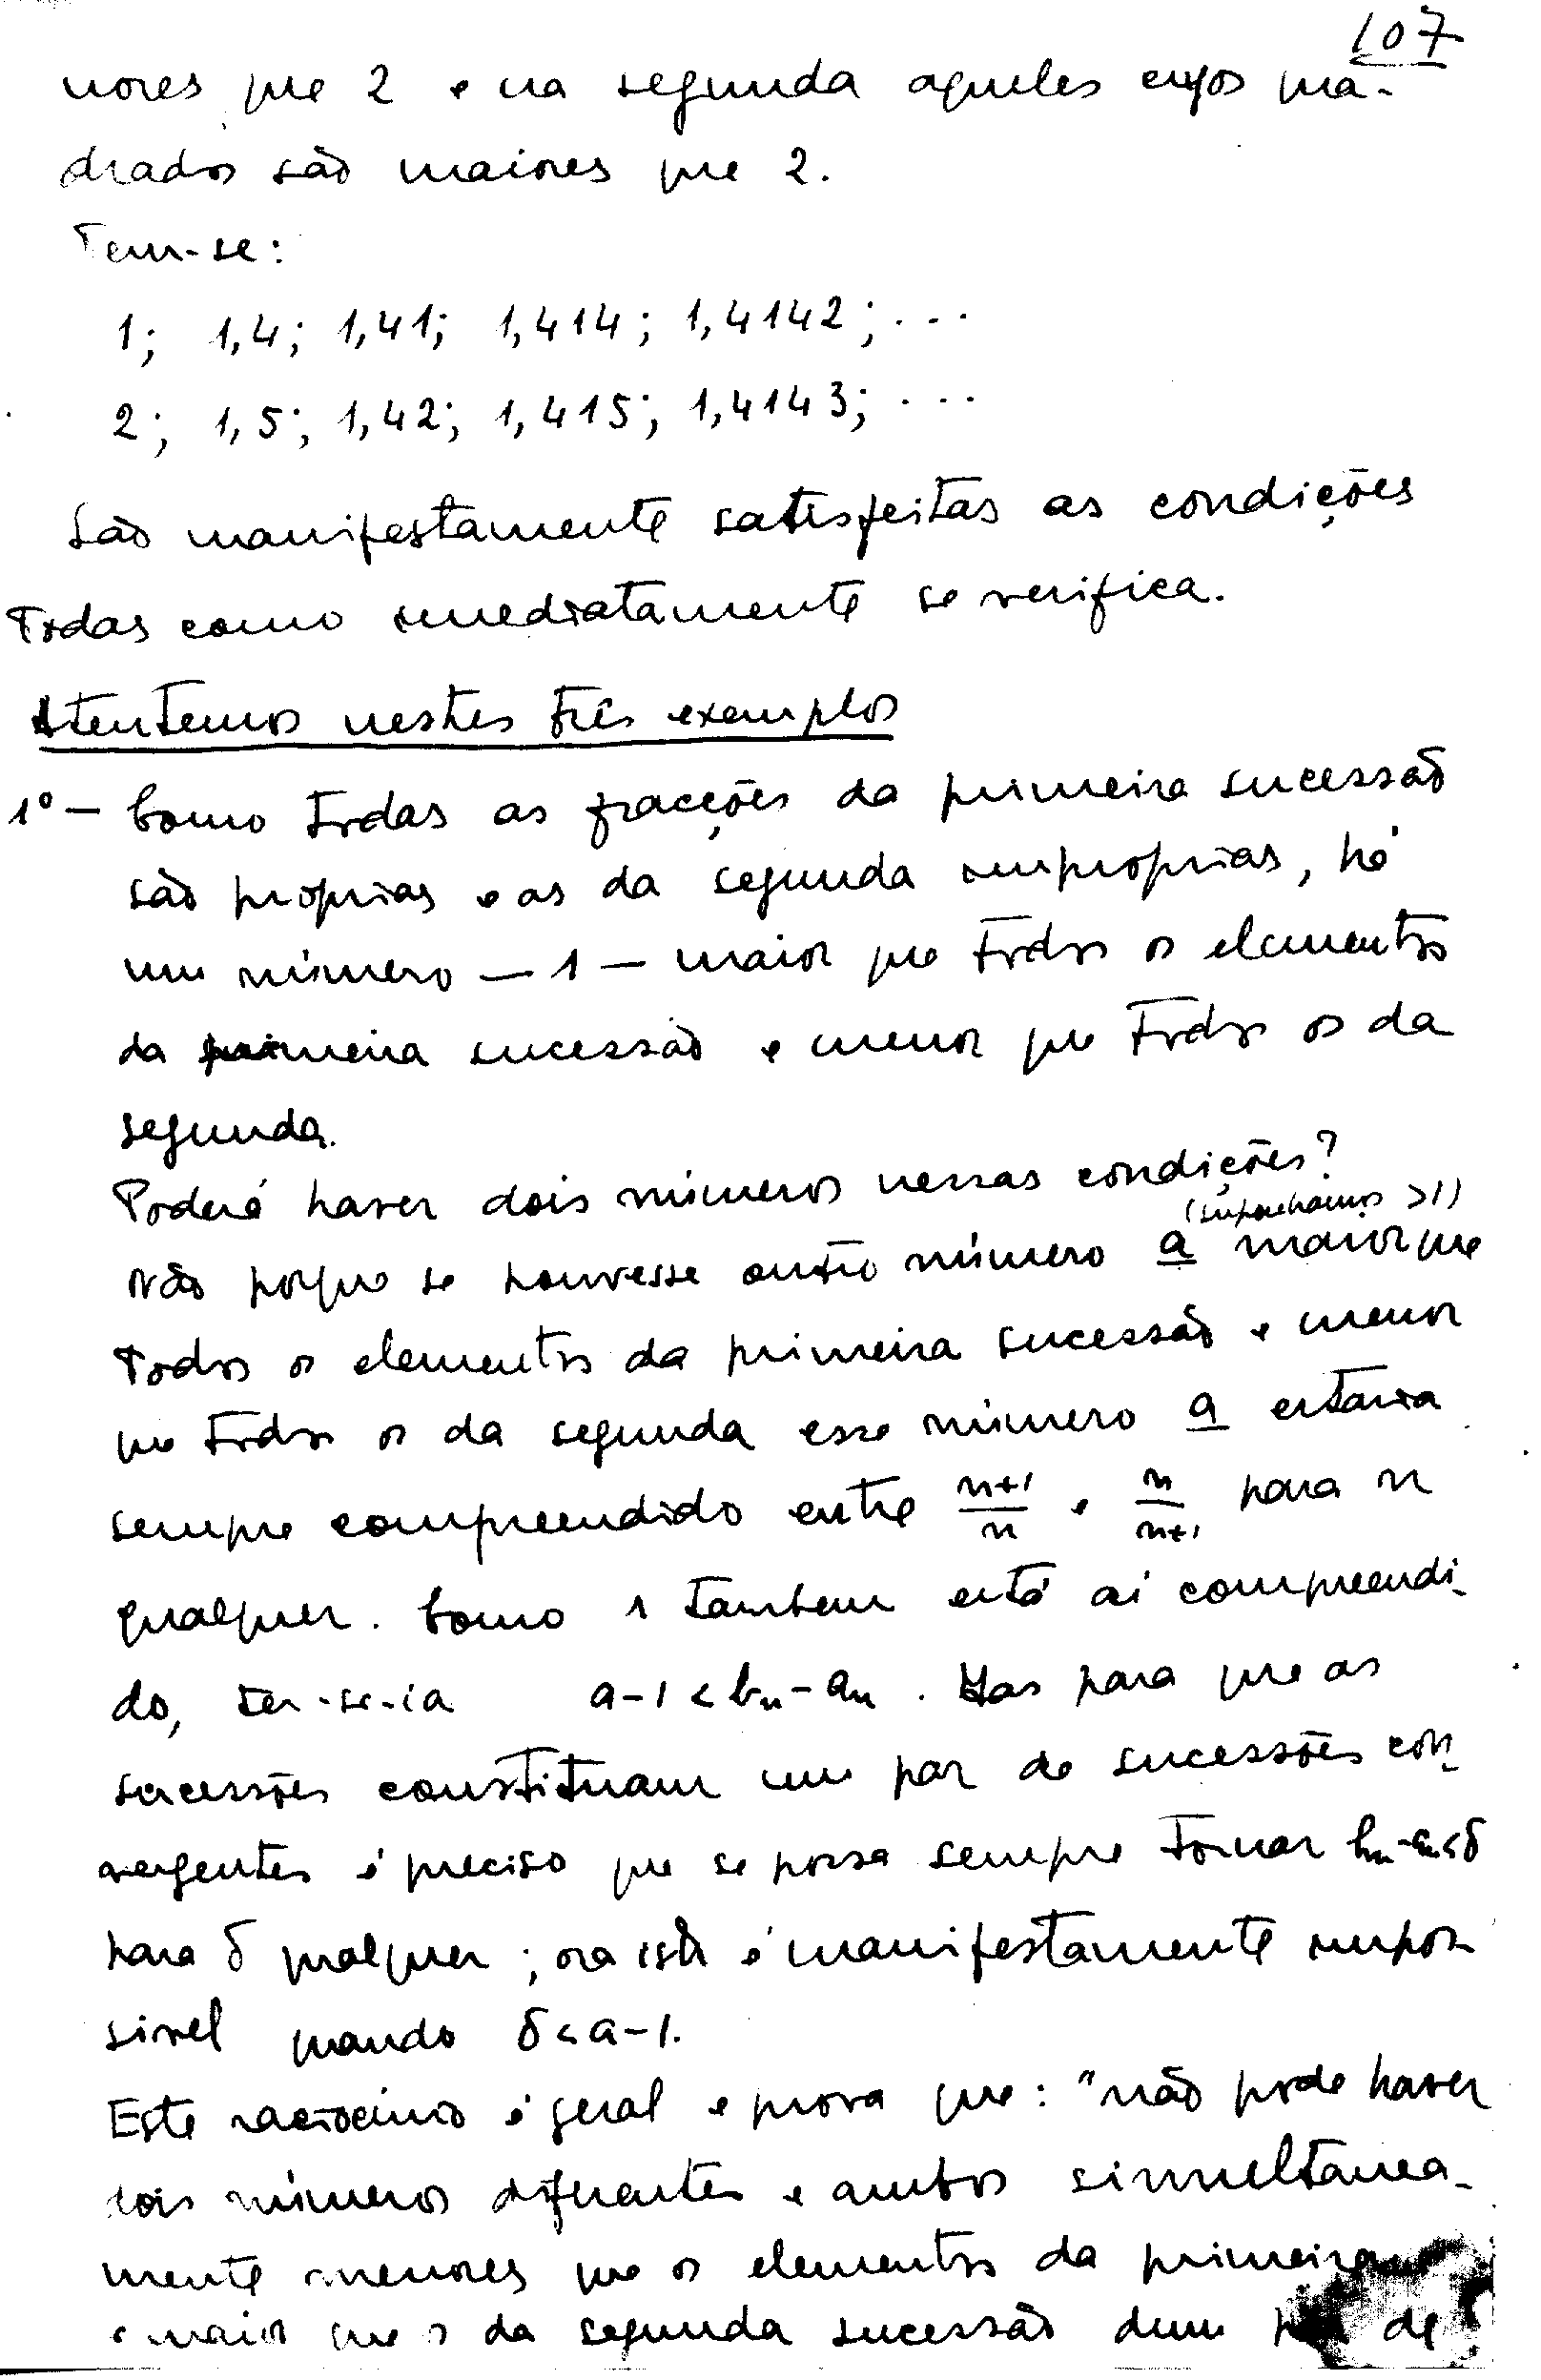 107
nores que 2 e na segunda aqueles cujos qua-
drados são maiores que 2.
Tem-se:
1; 1,4; 1,41; 1,414; 1,4142; ...
2; 1,5; 1,42; 1,415; 1,4143; ...
São manifestamente satisfeitas as condições
todas como imediatamente se verifica.
Atentemos nestes três exemplos
1º - Como todas as fracções da primeira sucessão
são próprias e as da segunda improprias, há
um número - 1 - maior que todos os elementos
da primeira sucessão e menor que todos os da
segunda.
Poderá haver dois números nessas condições?
(suponhamos >1)
Não porque se houvesse outro número a maior que
todos os elementos da primeira sucessão e menor
que todos os da segunda esse número a estaria
sempre compreendido entre n+1/n e n/n+1 para n
qualquer. Como 1 tambem está aí compreendi-
do, ter-se-ia a-1 < bn-an. Mas para que as
sucessões constituam um par de sucessões con-
vergentes é preciso que se possa sempre tornar bn-an<δ
para δ qualquer; ora isto é manifestamente impos-
sivel quando δ<a-1.
Este raciocínio é geral e prova que: "não pode haver
dois números diferentes e ambos simultânea-
mente menores que os elementos da primeira
e maior que os da segunda sucessão dum par de